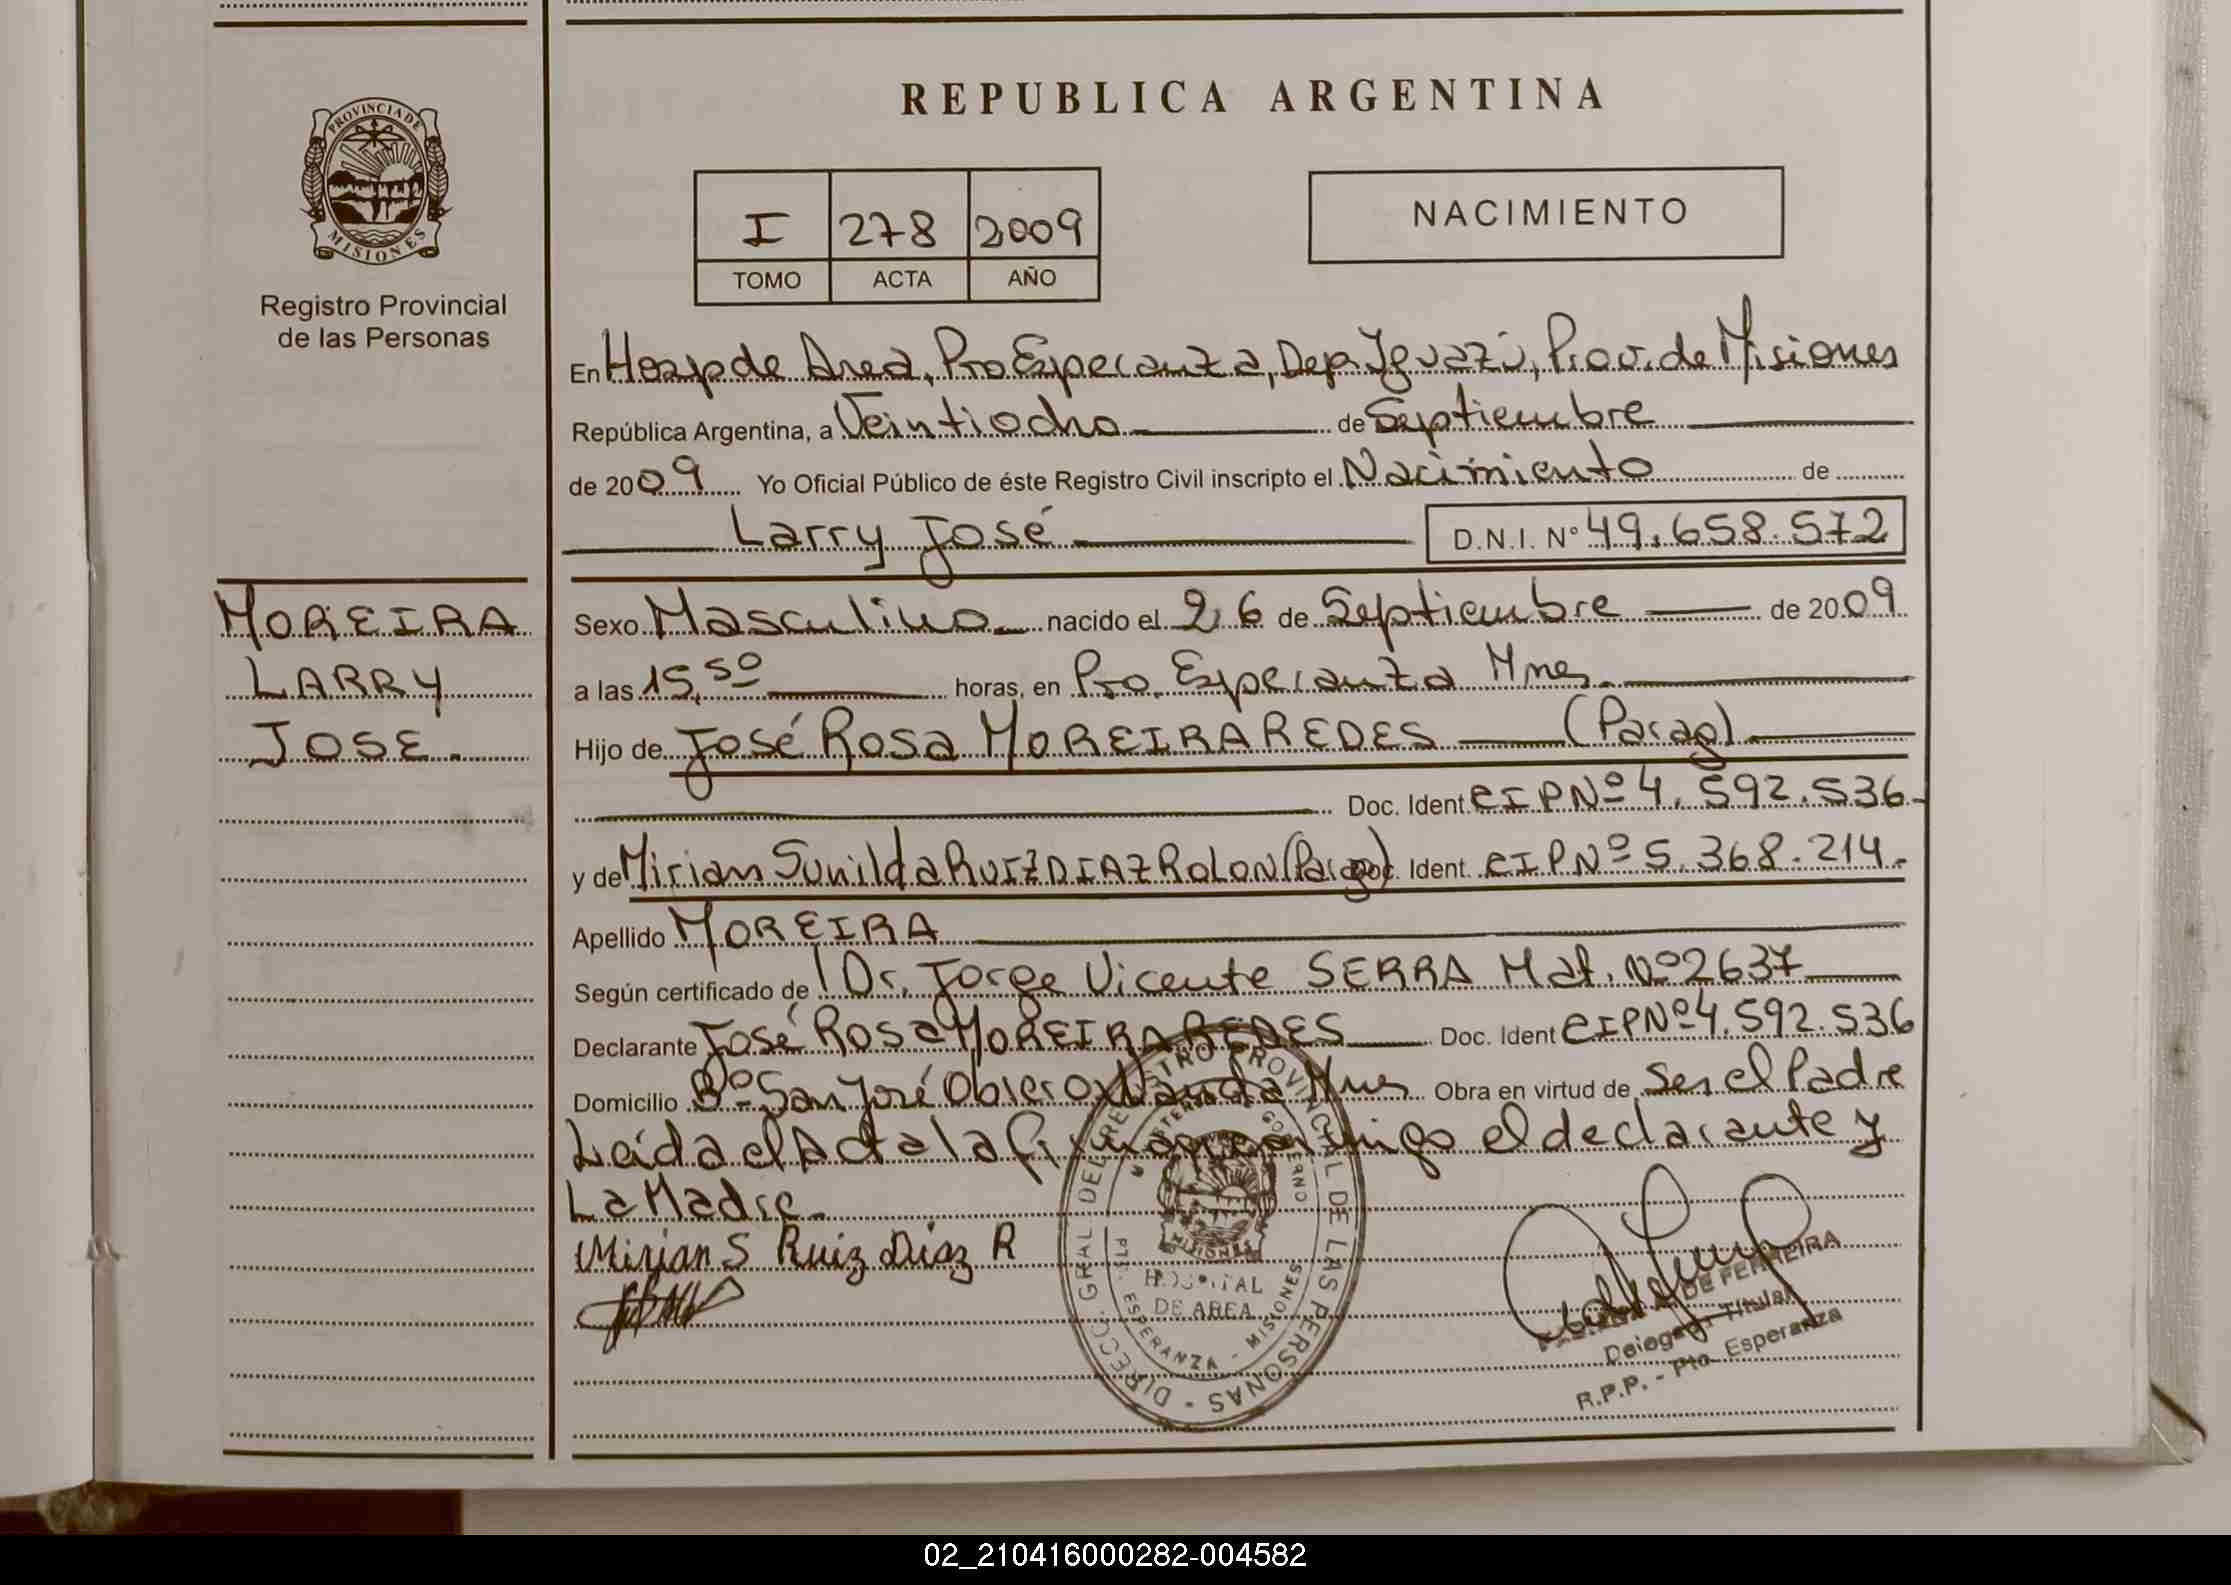 PROVINCIA DE
MISIONES
Registro Provincial
de las Personas
MOREIRA
LARRY
JOSE.
REPUBLICA ARGENTINA
I 278 2009
TOMO ACTA AÑO
NACIMIENTO
En Hosp de Area, Pto Esperanza, Dep. Iguazú, Prov. de Misiones
República Argentina, a Veintiocho de Septiembre
de 2009 Yo Oficial Público de éste Registro Civil inscripto el Nacimiento de
Larry José D.N.I. Nº 49.658.572
Sexo Masculino nacido el 26 de Septiembre de 2009
a las 15,50 horas, en Pto. Esperanza Mnes.
Hijo de José Rosa MOREIRA REDES (Parag)
Doc. Ident. CIPNº 4.592.536.
y de Mirian Sunilda RUIZ DIAZ ROLON (Parag) Doc. Ident. CIPNº 5.368.214.
Apellido MOREIRA
Según certificado de Dr. Jorge Vicente SERRA Mat. Nº 2637
Declarante José Rosa MOREIRA REDES Doc. Ident CIPNº 4.592.536
Domicilio Bº San José Obrero Wanda Mnes Obra en virtud de Ser el Padre
Leida el Acta la firman conmigo el declarante y
La Madre.
Mirian S Ruiz Diaz R
DIRECC. GRAL. DEL REGISTRO PROVINCIAL DE LAS PERSONAS
MINISTERIO DE GOBIERNO
MISIONES
HOSPITAL
DE AREA
PTO. ESPERANZA - MISIONES
DE FERREIRA
Delegada Titular
R.P.P. - Pto. Esperanza
02_210416000282-004582